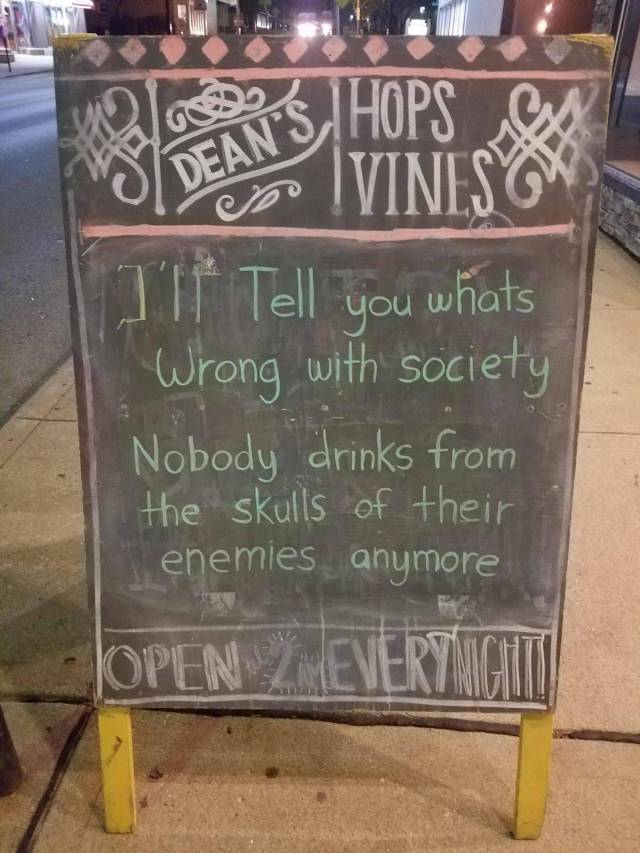 DEAN'S
HOPS
VINES
I'll Tell you whats
Wrong with society
Nobody drinks from
the skulls of their
enemies anymore
OPEN 'TIL 2AM EVERY NIGHT!